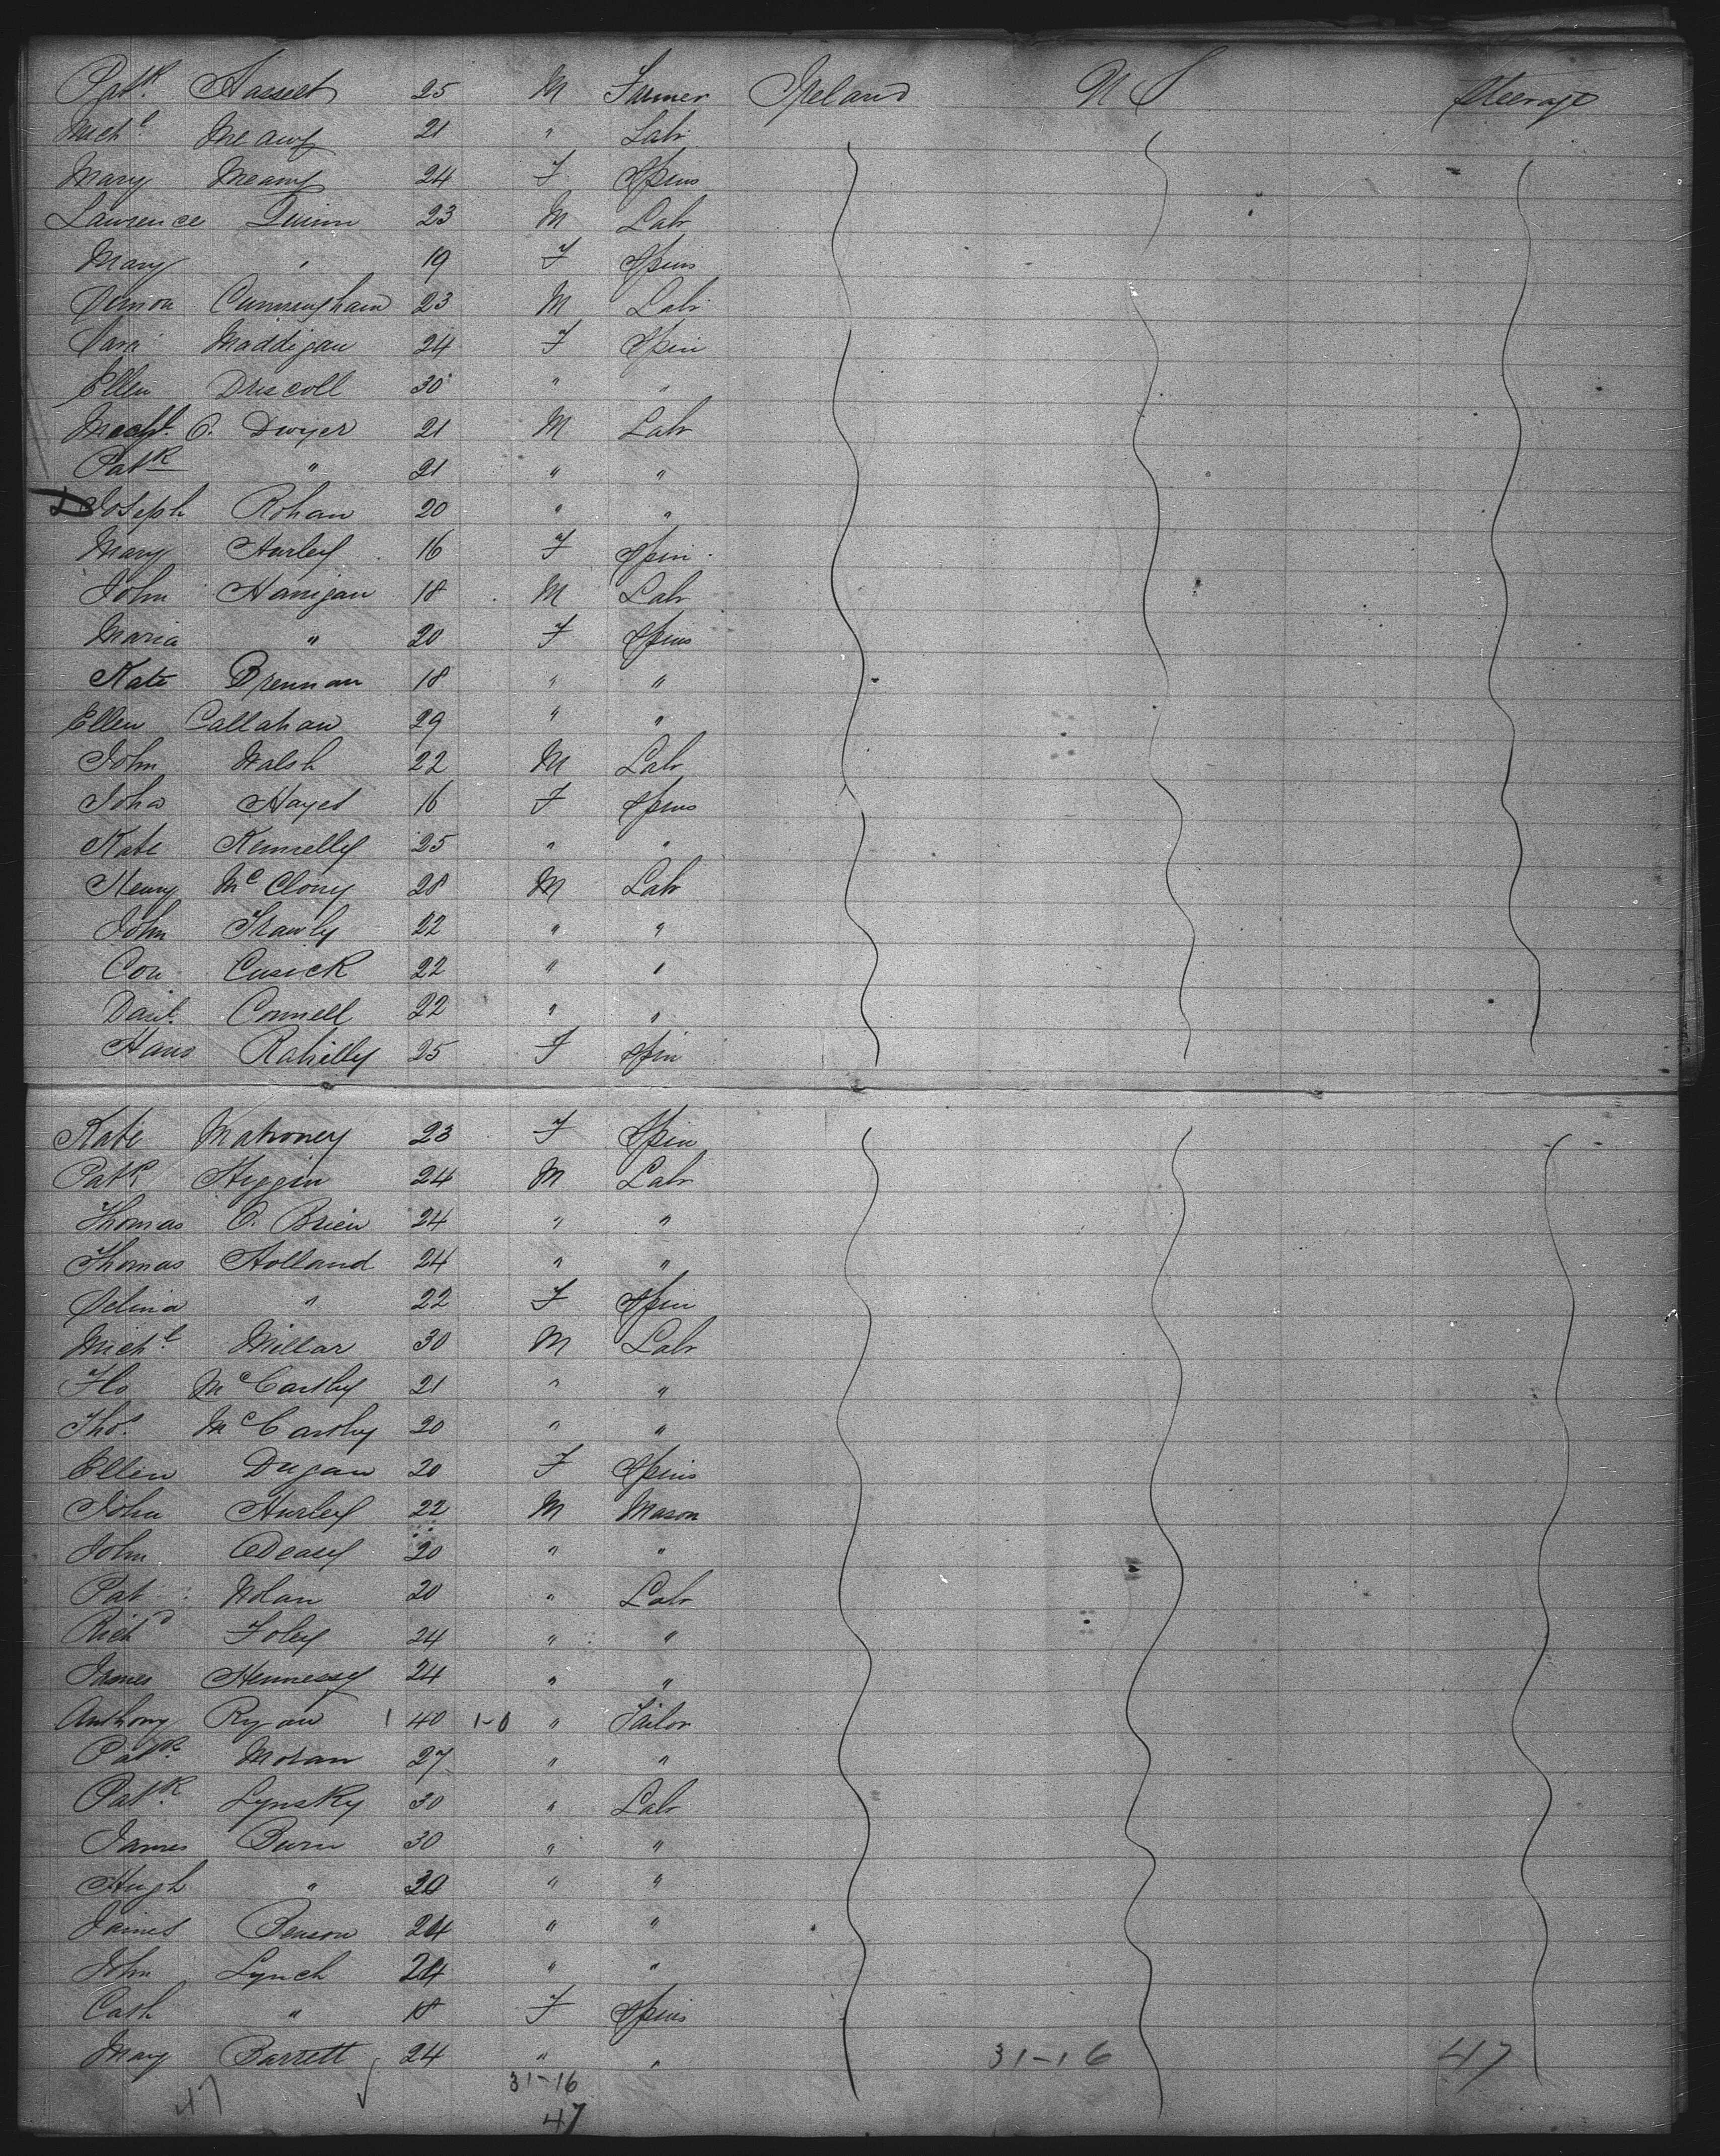 Patk. Hasset 25 M Farmer Ireland U S Steerage
Michl. Meany 21 " Labr
Mary Meany 24 F Spins
Lawrence Quinn 23 M Labr
Mary " 19 F Spins
Simon Cunningham 23 M Labr
Maddigan 24 F Spin
Ellen Driscoll 30 " "
O. Dwyer 21 M Labr
Patk " 21 " "
Joseph Rohan 20 " "
Mary Hurley 16 F Spin
John Hanigan 18 M Labr
Maria " 20 F Spins
Kate Brennan 18 " "
Ellen Callahan 29 " "
John Walsh 22 M Labr
Joha Hayes 16 F Spins
Kate Kennelly 25 " "
Henry Mc Clony 28 M Labr
John Frawly 22 " "
Con Cusick 22 " "
Danl. Connell 22 " "
Hans Rahilly 25 F Spin
Kate Mahoney 23 F Spin
Patk Higgin 24 M Labr
Thomas O. Brien 24 " "
Thomas Holland 24 " "
Selina " 22 F Spin
Michl Millar 30 M Labr
Flo Mc Carthy 21 " "
Thos. Mc Carthy 20 " "
Ellen Dugan 20 F Spins
John Hurley 22 M Mason
John Deasy 20 " "
Pat Nolan 20 " Labr
Richd Foley 24 " "
James Hennessy 24 " "
Anthony Ryan 1 40 1-0 " Tailor
Patk. Moran 27 " "
Patk. Lynsky 30 " Labr
James Burn 30 " "
Hugh " 30 " "
James Benson 24 " "
John Lynch 24 " "
Cath " 18 F Spins
Mary Barrett 24 " " 31-16 47
47 31-16
47